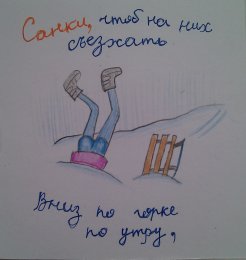 Санки, чтоб на них
съезжать
Вниз по горке
по утру,